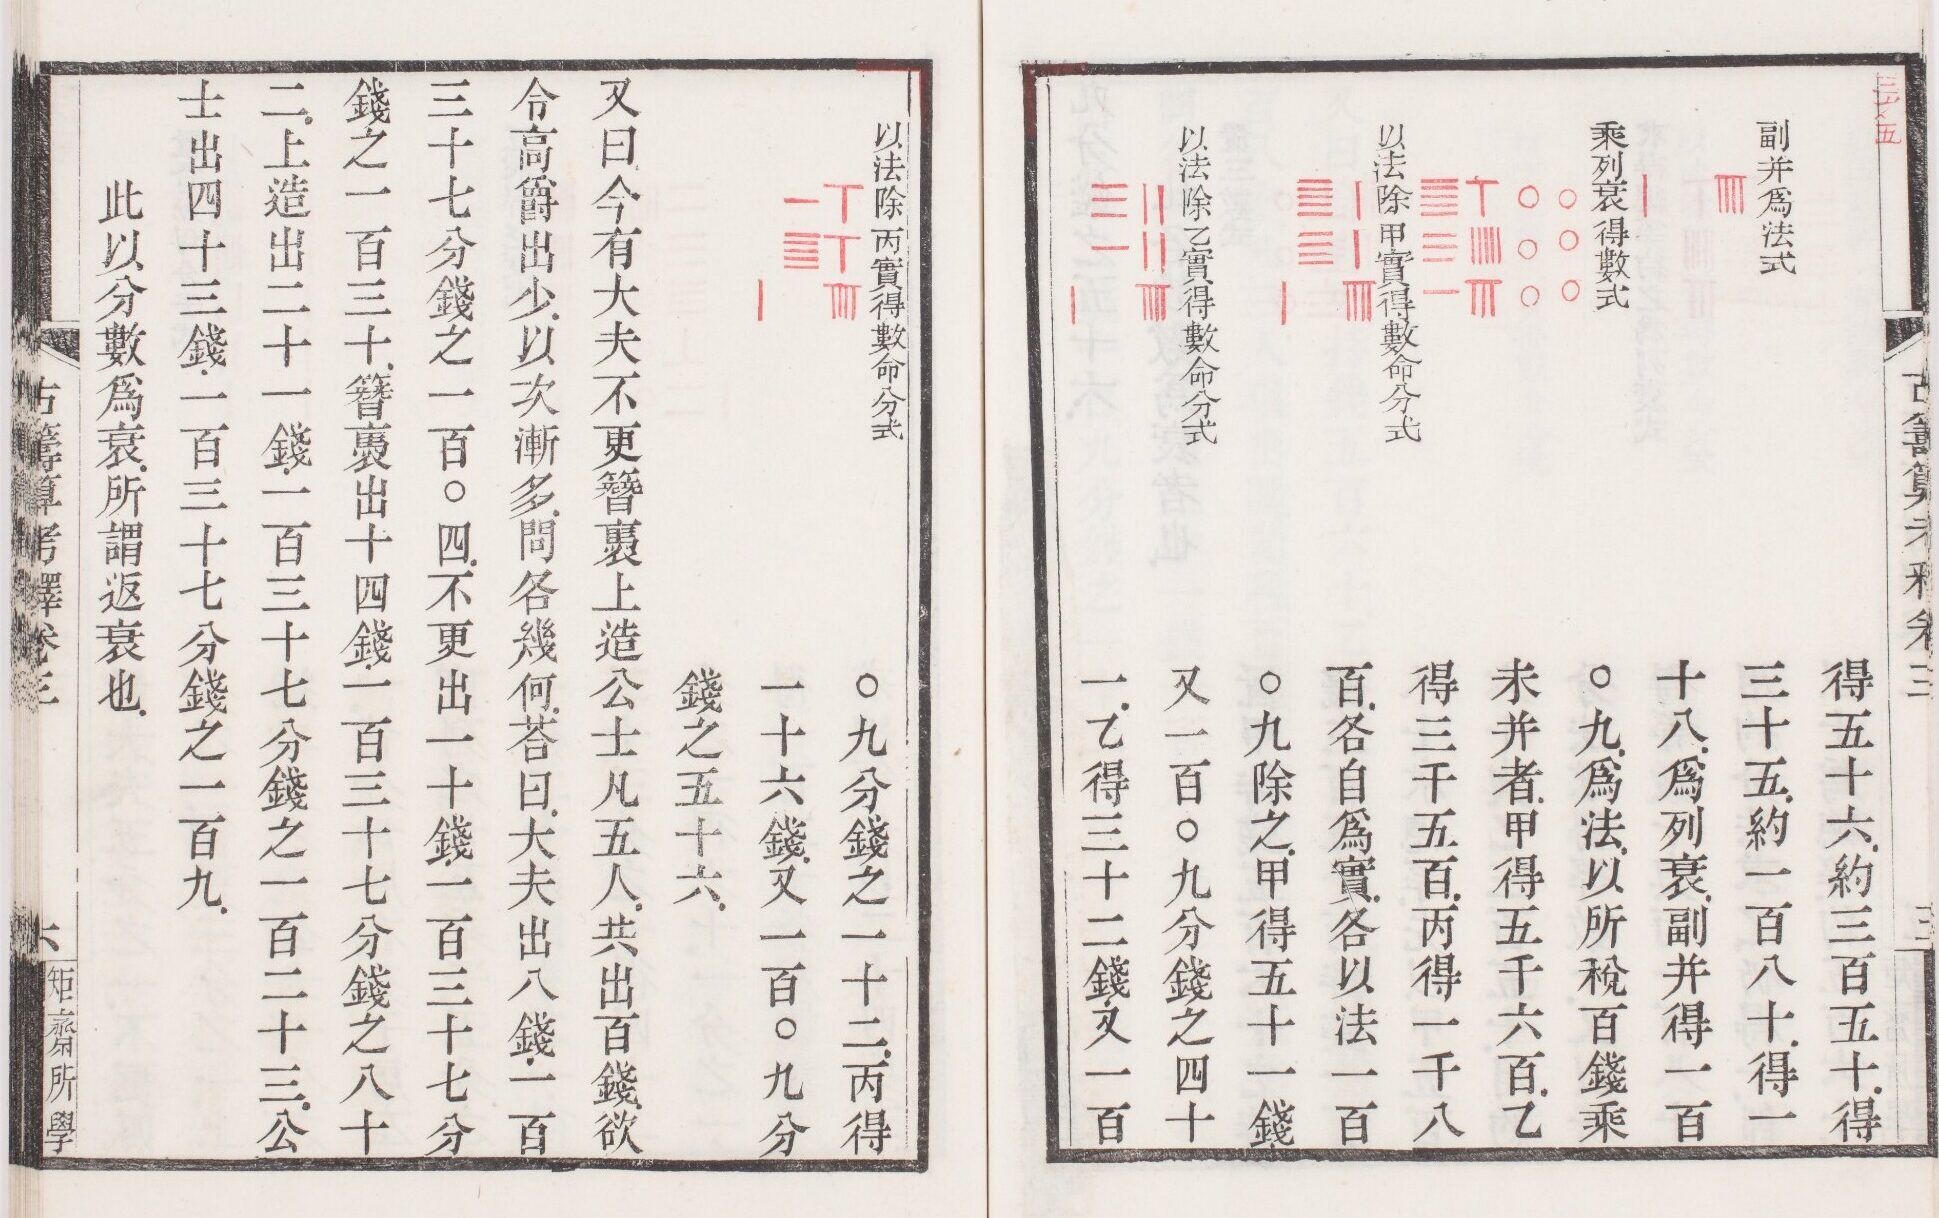 古籌算考釋卷三
得五十六、約三百五十、得
副并爲法式
三十五、約一百八十、得一
十八、爲列衰、副并得一百
乘列衰得數式
〇九、爲法、以所稅百錢乘
未并者、甲得五千六百、乙
得三千五百、丙得一千八
以法除甲實得數命分式
百、各自爲實、各以法一百
〇九除之、甲得五十一錢、
以法除乙實得數命分式
又一百〇九分錢之四十
一、乙得三十二錢、又一百
以法除丙實得數命分式
〇九分錢之一十二、丙得
一十六錢、又一百〇九分
錢之五十六、
又曰、今有大夫不更簪褭上造公士凡五人、共出百錢、欲
令高爵出少、以次漸多、問各幾何、荅曰、大夫出八錢、一百
三十七分錢之一百〇四、不更出一十錢、一百三十七分
錢之一百三十、簪褭出十四錢、一百三十七分錢之八十
二、上造出二十一錢、一百三十七分錢之一百二十三、公
士出四十三錢、一百三十七分錢之一百九、
此以分數爲衰、所謂返衰也、
古籌算考釋卷三
六
矩齋所學